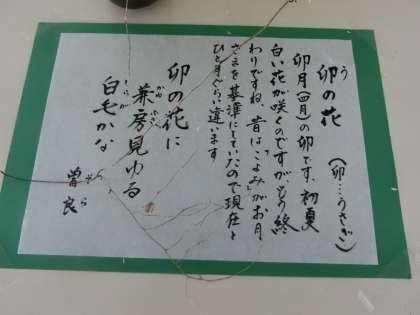 う
卯の花 (卯…うさぎ)
卯月(四月)の卯です、初夏
白い花が咲くのですが、もう終
わりですね、昔は「こよみ」がお月
さまを基準にしていたので現在と
ひと月ぐらい違います
卯の花に
かねふさ
兼房見ゆる
しらが
白毛かな
そら
曽良